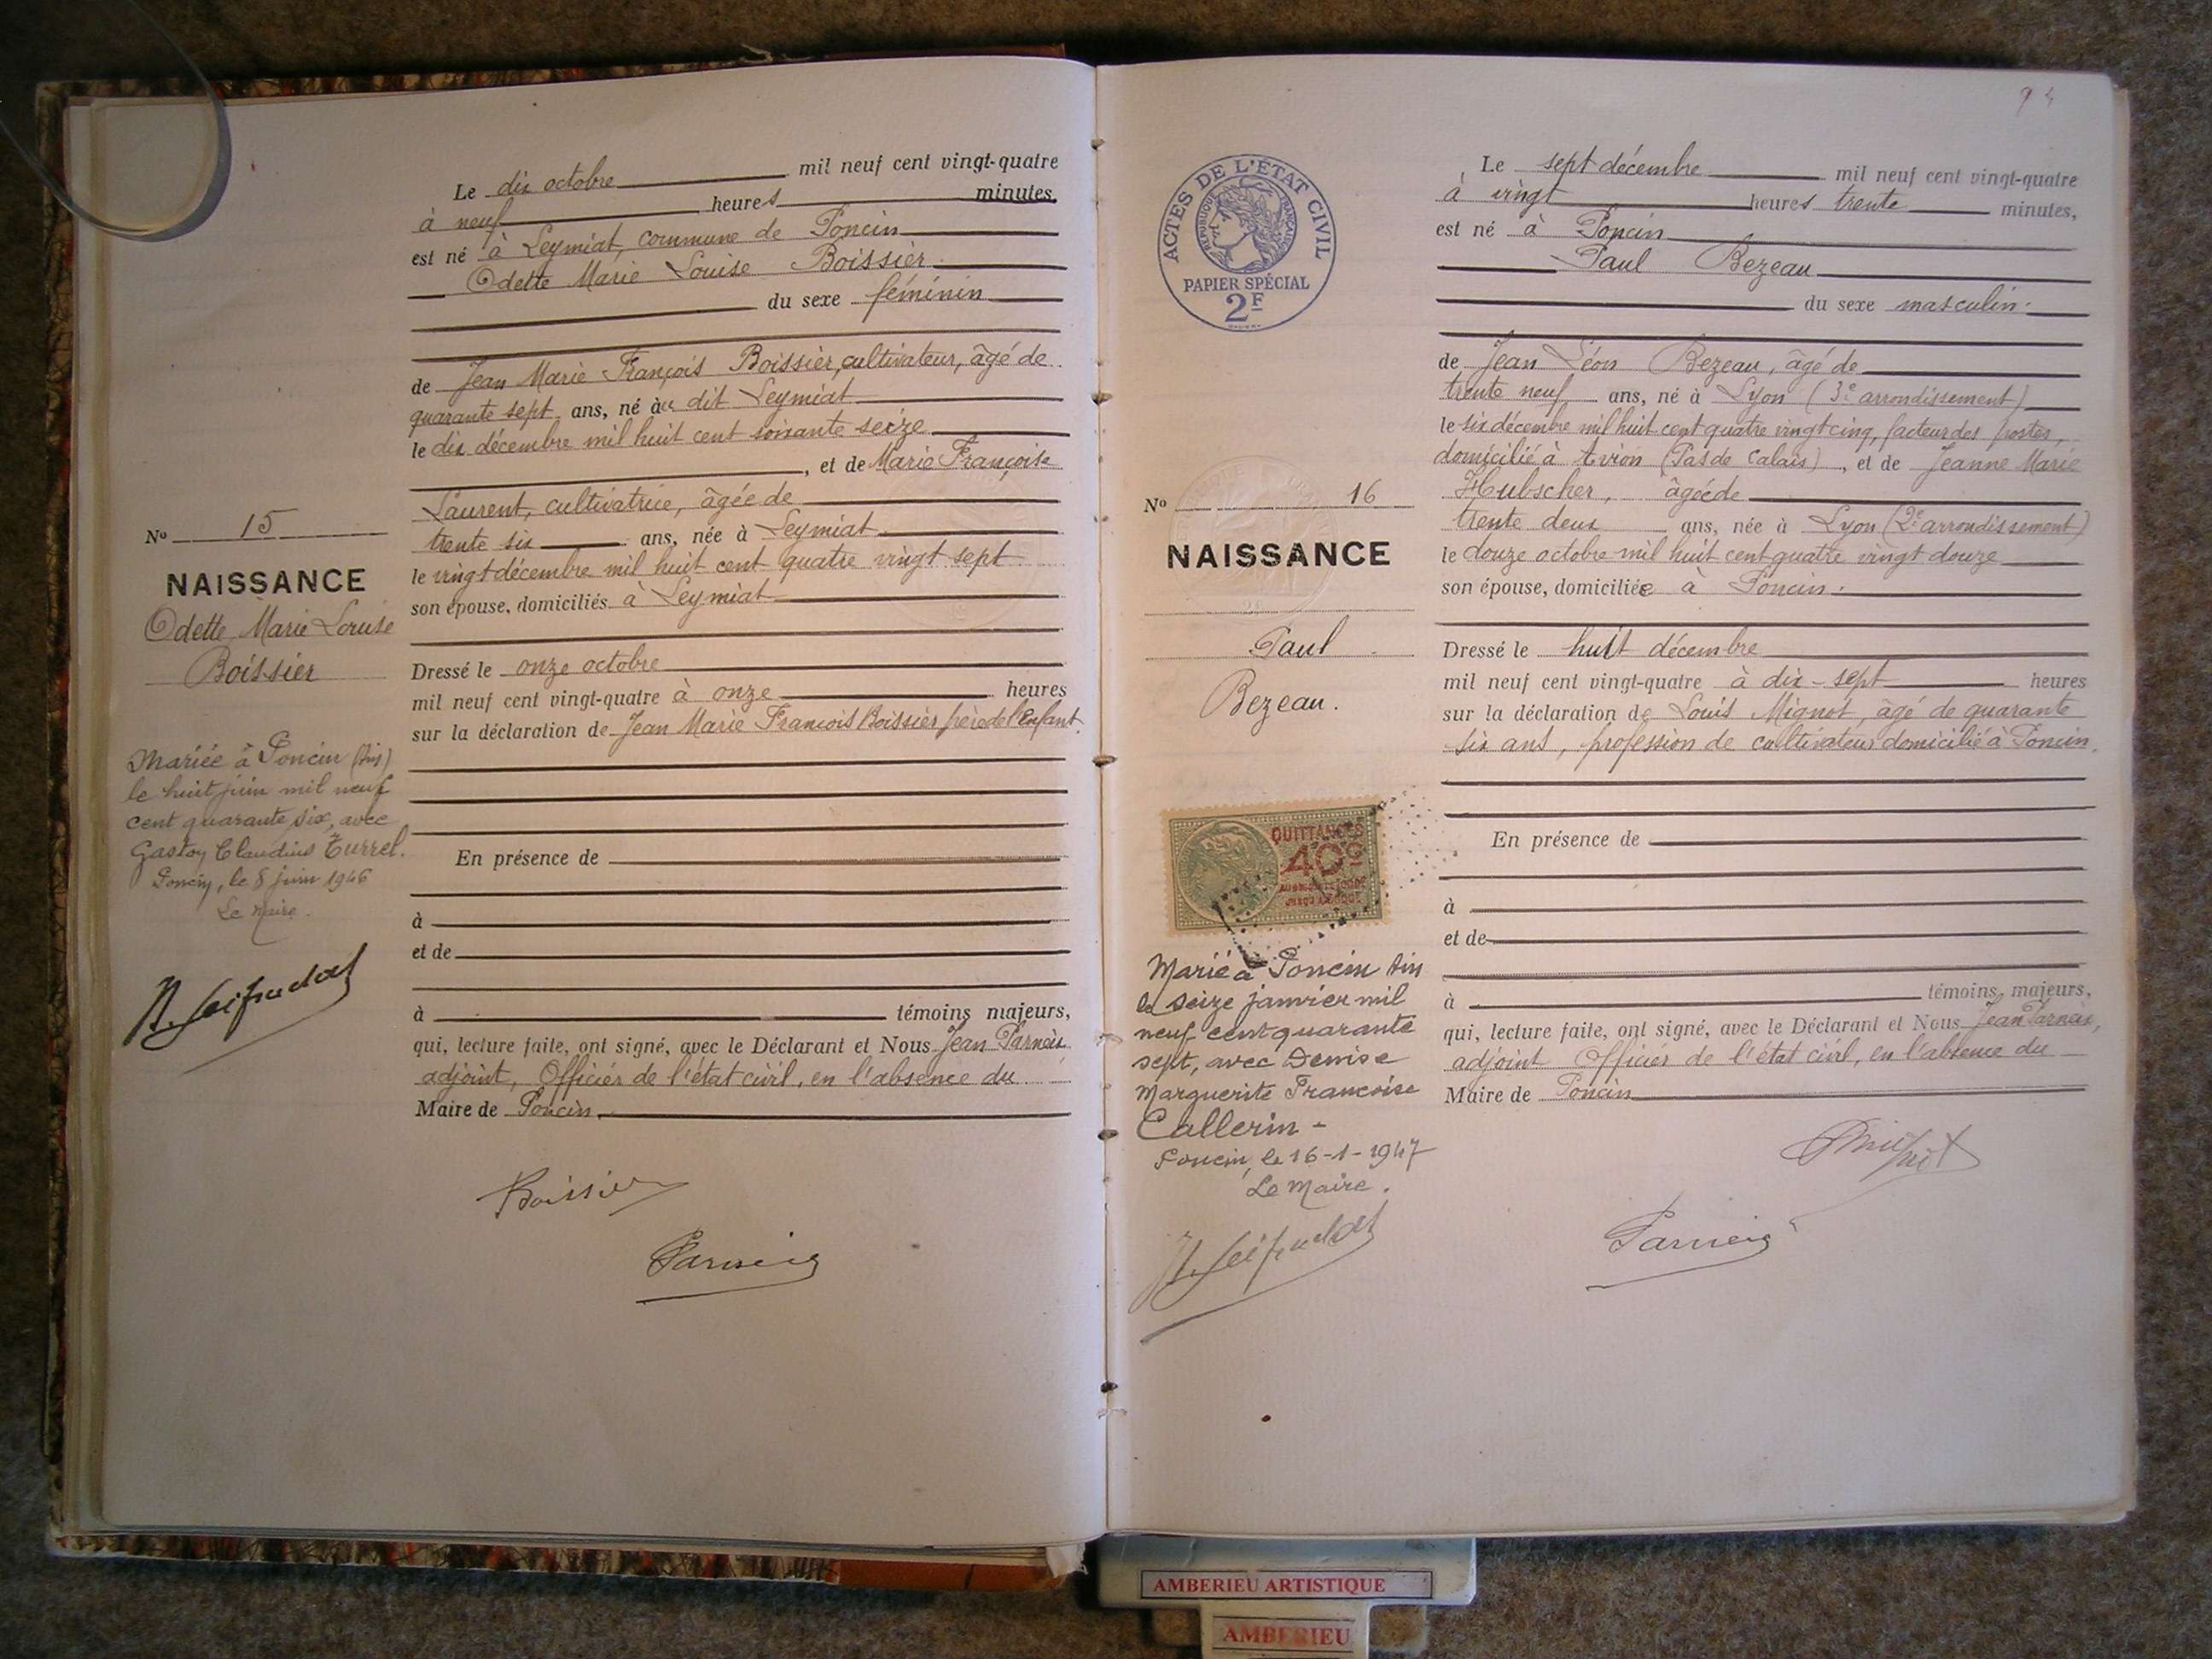 Le dix octobre mil neuf cent vingt-quatre
à neuf heures minutes,
est né à Leymiat, commune de Poncin
Odette Marie Louise Boissier
du sexe féminin
de Jean Marie François Boissier, cultivateur, âgé de
quarante sept ans, né au dit Leymiat
le dix décembre mil huit cent soixante seize
, et de Marie Françoise
Laurent, cultivatrice, âgée de
trente six ans, née à Leymiat
le vingt décembre mil huit cent quatre vingt sept
son épouse, domiciliés à Leymiat
Dressé le onze octobre
mil neuf cent vingt-quatre à onze heures
sur la déclaration de Jean Marie François Boissier père de l'enfant.
En présence de
à
et de
à témoins majeurs,
qui, lecture faite, ont signé, avec le Déclarant et Nous Jean Parneix
adjoint, Officier de l'état civil, en l'absence du
Maire de Poncin
Boissier
Parneix
No 15
NAISSANCE
Odette Marie Louise
Boissier
Mariée à Poncin (Ain)
le huit juin mil neuf
cent quarante six, avec
Gaston Claudius Turrel.
Poncin, le 8 juin 1946
Le Maire.
94
ACTES DE L'ÉTAT CIVIL
RÉPUBLIQUE FRANÇAISE
PAPIER SPÉCIAL
2F
Le sept décembre mil neuf cent vingt-quatre
à vingt heures trente minutes,
est né à Poncin
Paul Bezeau
du sexe masculin.
de Jean Léon Bezeau, âgé de
trente neuf ans, né à Lyon (3e arrondissement)
le six décembre mil huit cent quatre vingt cinq, facteur des postes,
domicilié à Avion (Pas de Calais), et de Jeanne Marie
Hubscher, âgée de
trente deux ans, née à Lyon (2e arrondissement)
le douze octobre mil huit cent quatre vingt douze
son épouse, domiciliée à Poncin.
Dressé le huit décembre
mil neuf cent vingt-quatre à dix-sept heures
sur la déclaration de Louis Mignot, âgé de quarante
six ans, profession de cultivateur domicilié à Poncin.
En présence de
à
et de
à témoins majeurs,
qui, lecture faite, ont signé, avec le Déclarant et Nous Jean Parneix,
adjoint Officier de l'état civil, en l'absence du
Maire de Poncin
Mignot
Parneix
No 16
NAISSANCE
Paul
Bezeau.
QUITTANCES
40c
Marié à Poncin Ain
le seize janvier mil
neuf cent quarante
sept, avec Denise
Marguerite Françoise
Callerin -
Poncin, le 16-1-1947
Le Maire.
AMBERIEU ARTISTIQUE
AMBERIEU